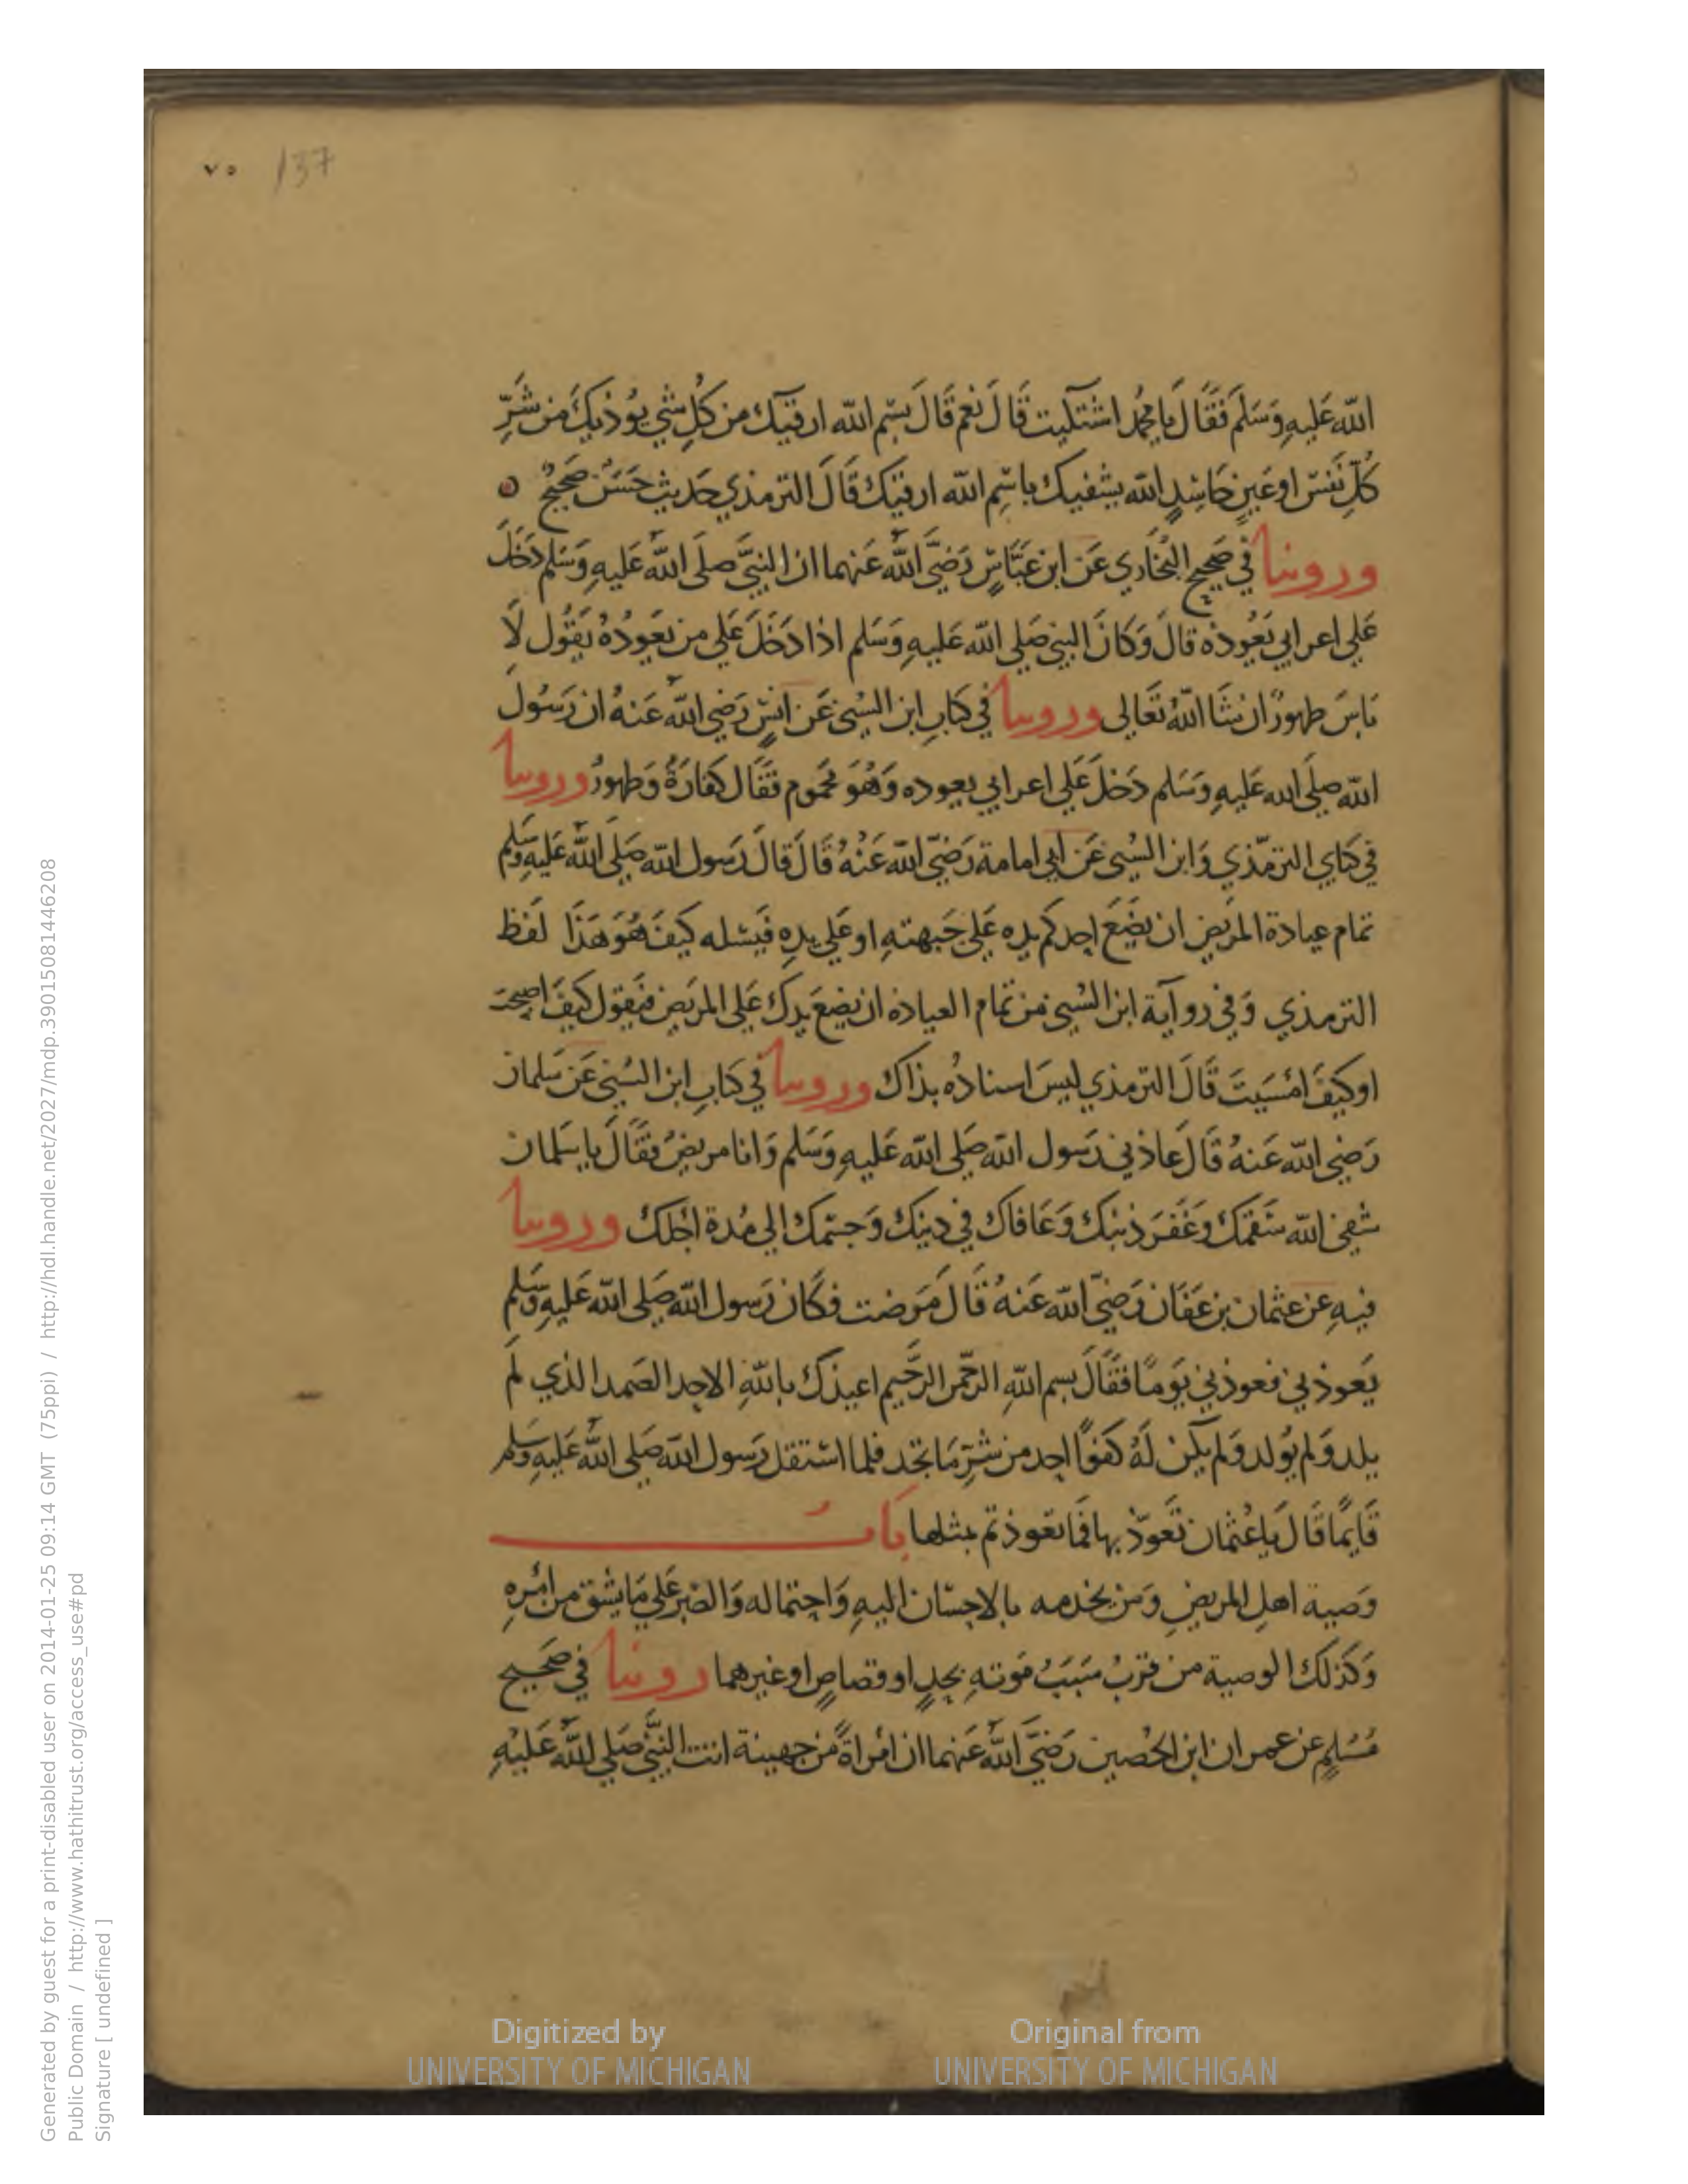 ٧٥ 137
الله عَليهِ وَسَلم فَقَالَ يا محمُد اشتكيت قَالَ نَعم قَالَ بسْمِ الله ارقيك من كُلِ شي يوُذيكَ من شَرِّ
كُلِّ نَفسٍ او عَينٍ حَاسِدٍ الله يشفيك باسْمِ الله ارقيك قَالَ الترمذي حَديث حَسَنٌ صَحِيحٌ
وروينا في صَحِيح البُخَاري عَن ابن عَبَّاسٍ رَضيَّ اللهُ عَنهما ان النبيَّ صلى اللهُ عَليهِ وَسَلم دَخَلَ
عَلي اعرابي يَعُوده قالَ وَكانَ النبي صَلي الله عَليهِ وَسَلم اذا دَخَلَ عَلي من يَعودُهُ يَقُول لَا
بَاسَ طهورٌ ان شَا اللهُ تَعَالى وروينا في كتابِ ابن السُني عَن انسٍ رَضي اللهُ عَنهُ ان رَسُولَ
الله صلَى الله عَليهِ وَسَلم دَخلَ عَلي اعرابي يعوده وَهُوَ محَموم فقَالَ كفارَةٌ وَطهورٌ وروينا
في كتاي الترمّذي وَابن السُني عَن ابي امامة رَضيّ الله عَنْهُ قَالَ قالَ رَسول الله صَلى اللهُ عَليهِ وسَلم
تمام عيادة المرَيض ان يضَعَ احدكم يده عَلي جَبهتهِ او عَلي يدهِ فَيسْله كَيفَ هُوَ هَذَا لَفظ
الترمذي وَفي روآية ابن السُني من تمَام العيادة ان تضعَ يدكَ عَلي المريَض فتقول كيفَ اصبحتَ
او كَيفَ امْسَيتَ قَالَ الترمذي ليسَ اسنادُه بذاك وروينا في كتابِ ابن السُني عَن سَلمان
رَضي الله عَنهُ قَالَ عَادَني رَسول الله صَلي الله عَليهِ وَسَلم وَانا مريضٌ فقَالَ يا سَلمان
شفي الله سَقمكَ وَغَفرَ ذنبكَ وَعَافاك في دينكَ وَجسْمكَ الي مُدة اجَلكَ وروينا
فيهِ عن عثمان بن عَفان رَضيّ الله عَنهُ قَالَ مَرَضت فكَان رَسول الله صَلي الله عَليهِ وَسَلم
يَعوذني فعوذني يوَمًا فقَالَ بسم اللهِ الرحّمن الرحَّيم اعيذكَ باللهِ الاحد الصَمد الذي لَم
يلد وَلم يوُلد وَلم يكن لَهُ كفوًا احد من شَرِّ مَا تجد فلما استقل رَسول الله صَلي اللهُ عَليهِ وسَلم
قَايمًا قَالَ يا عُثمَان تَعَوّذ بها فمَا تعوذتم بمثلها بَابُ
وَصية اهلِ المريضِ وَمَن يخدمه بالاحسَان اليهِ وَاحتماله وَالصَبرِ عَلي مَا يشق من امْرهِ
وَكَذلكَ الوصية من قربُ سَبَبُ مَوتهِ بحدٍ او قصاصٍ او غيرهما روينا في صَحيح
مُسْلمٍ عن عمران ابن الحُصين رَضيَّ اللهُ عَنهما ان امْراةً من جهينة اتت النبيَّ صَلي اللهُ عَليهِ
Digitized by UNIVERSITY OF MICHIGAN
Original from UNIVERSITY OF MICHIGAN
Generated by guest for a print-disabled user on 2014-01-25 09:14 GMT (75ppi) / http://hdl.handle.net/2027/mdp.39015081446208
Public Domain / http://www.hathitrust.org/access_use#pd
Signature [ undefined ]